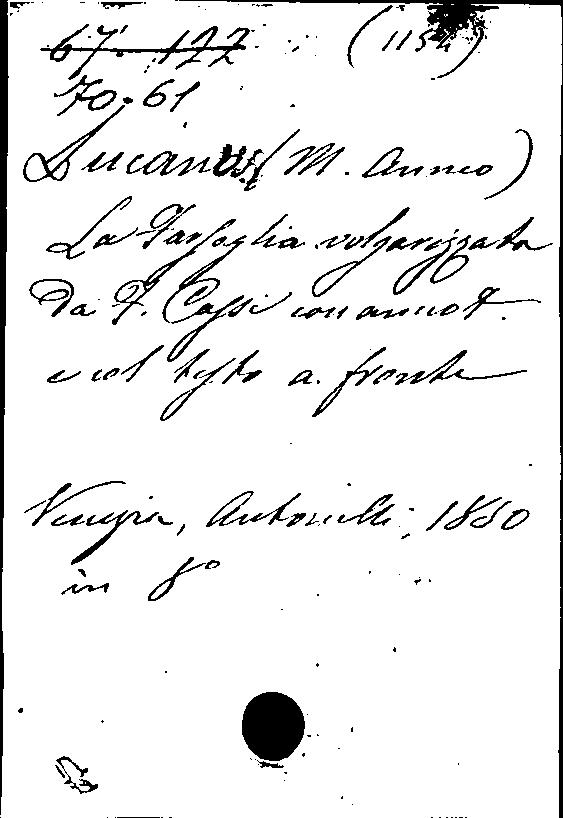 67. 122 (1154)
70.61
Lucanus (M. Anneo)
La Farsaglia volgarizzata
da F. Cassi con annot.
e col testo a fronte
Venezia, Antonelli, 1850
in 8º